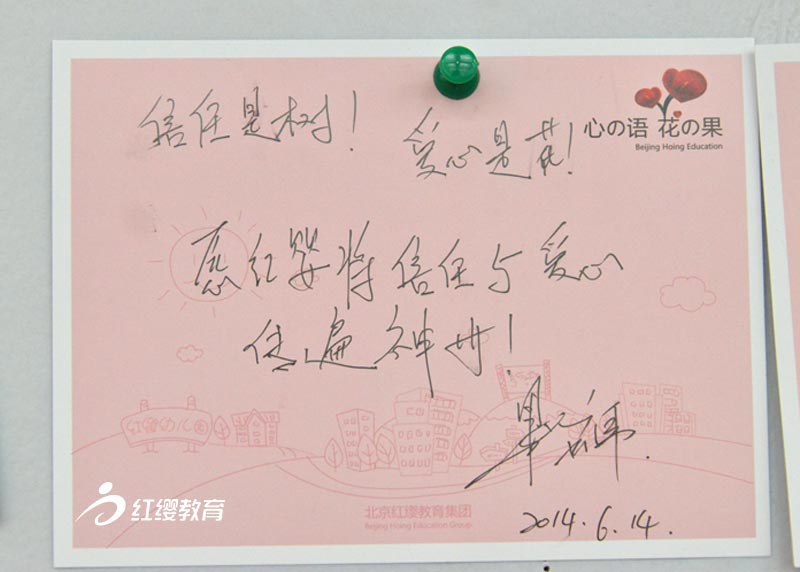 心の语 花の果
Beijing Hoing Education
信任是树!
爱心是花!
愿红婴将信任与爱心
传遍神州!
红缨幼儿园
2014.6.14.
红缨教育
北京红缨教育集团
Beijing Hoing Education Group